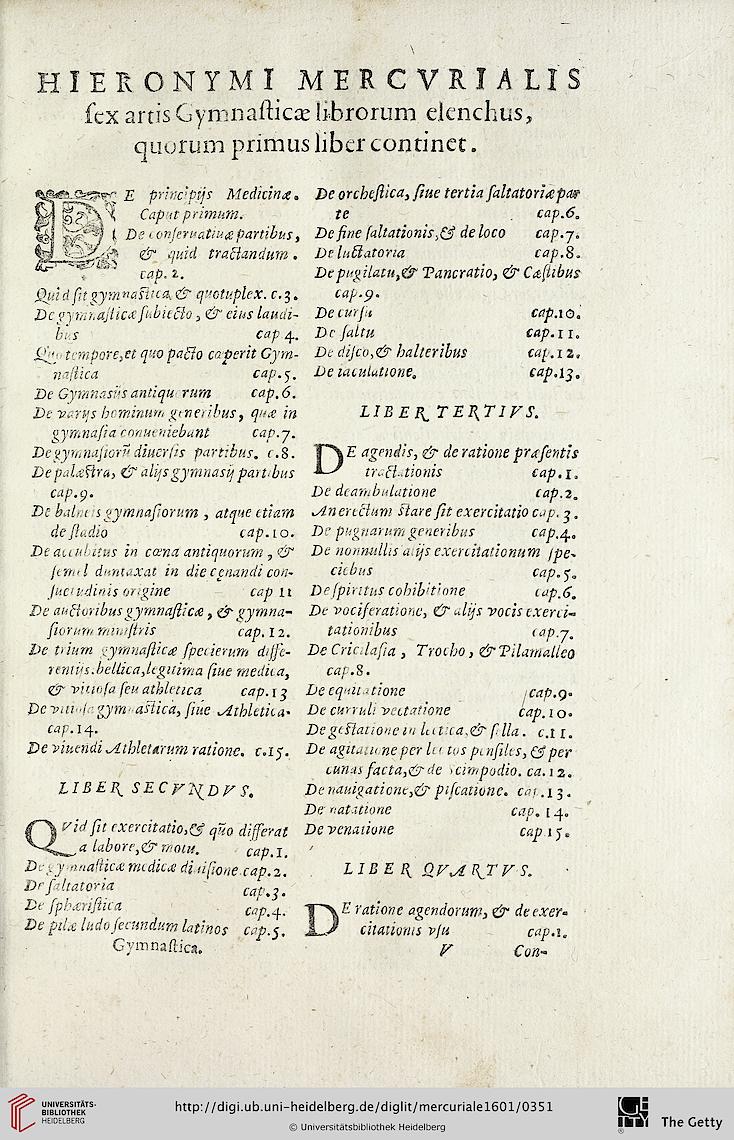 HIERONYMI MERCVRIALIS
ſex artis Gymnaſticæ librorum elenchus,
quorum primus liber continet.
DE principijs Medicinæ.
Caput primum.
De conſeruatiuæ partibus,
& quid tractandum.
cap. 2.
Quid ſit gymnaſtica, & quotuplex. c.3.
De gymnaſticæ ſubiecto, & eius laudi-
bus cap 4.
Quo tempore, et quo pacto cœperit Gym-
naſtica cap.5.
De Gymnasijs antiquorum cap.6.
De varijs hominum generibus, quæ in
gymnaſia conueniebant cap.7.
De gymnaſiorū diuerſis partibus. c.8.
De palæſtra, & alijs gymnasij partibus
cap.9.
De balneis gymnaſiorum, atque etiam
de ſtadio cap.10.
De accubitus in cœna antiquorum, &
ſemel duntaxat in die cęnandi con-
ſuetudinis origine cap 11
De auctoribus gymnaſticæ, & gymna-
ſiorum miniſtris cap.12.
De trium gymnaſticæ ſpecierum diffe-
rentijs. bellica, legitima ſiue medica,
& vitioſa ſeu athletica cap.13
De vitioſa gymnaſtica, ſiue Athletica.
cap.14.
De viuendi Athletarum ratione. c.15.
LIBER SECVNDVS.
QVid ſit exercitatio, & quo differat
a labore, & motu. cap.1.
De gymnaſticæ medicæ diuiſione cap.2.
De ſaltatoria cap.3.
De ſphæriſtica cap.4.
De pilæ ludo ſecundum latinos cap.5.
Gymnaſtica.
De orcheſtica, ſiue tertia ſaltatoriæ par
te cap.6.
De fine ſaltationis, & de loco cap.7.
De luctatoria cap.8.
De pugilatu, & Pancratio, & Cæſtibus
cap.9.
De curſu cap.10.
De ſaltu cap.11.
De diſco, & halteribus cap.12.
De iaculatione. cap.13.
LIBER TERTIVS.
DE agendis, & de ratione præſentis
tractationis cap.1.
De deambulatione cap.2.
An erectum ſtare ſit exercitatio cap.3.
De pugnarum generibus cap.4.
De nonnullis alijs exercitationum ſpe-
ciebus cap.5.
De ſpiritus cohibitione cap.6.
De vociferatione, & alijs vocis exerci-
tationibus cap.7.
De Cricilaſia, Trocho, & Pilamalleo
cap.8.
De equitatione cap.9.
De curruli vectatione cap.10.
De geſtatione in lectica, & ſella. c.11.
De agitatione per lectos penſiles, & per
cunas facta, & de ſcimpodio. ca.12.
De nauigatione, & piſcatione. cap.13.
De natatione cap.14.
De venatione cap 15.
LIBER QVARTVS.
DE ratione agendorum, & de exer-
citationis vſu cap.1.
V Con-
UNIVERSITÄTS-
BIBLIOTHEK
HEIDELBERG
http://digi.ub.uni-heidelberg.de/diglit/mercuriale1601/0351
© Universitätsbibliothek Heidelberg
The Getty